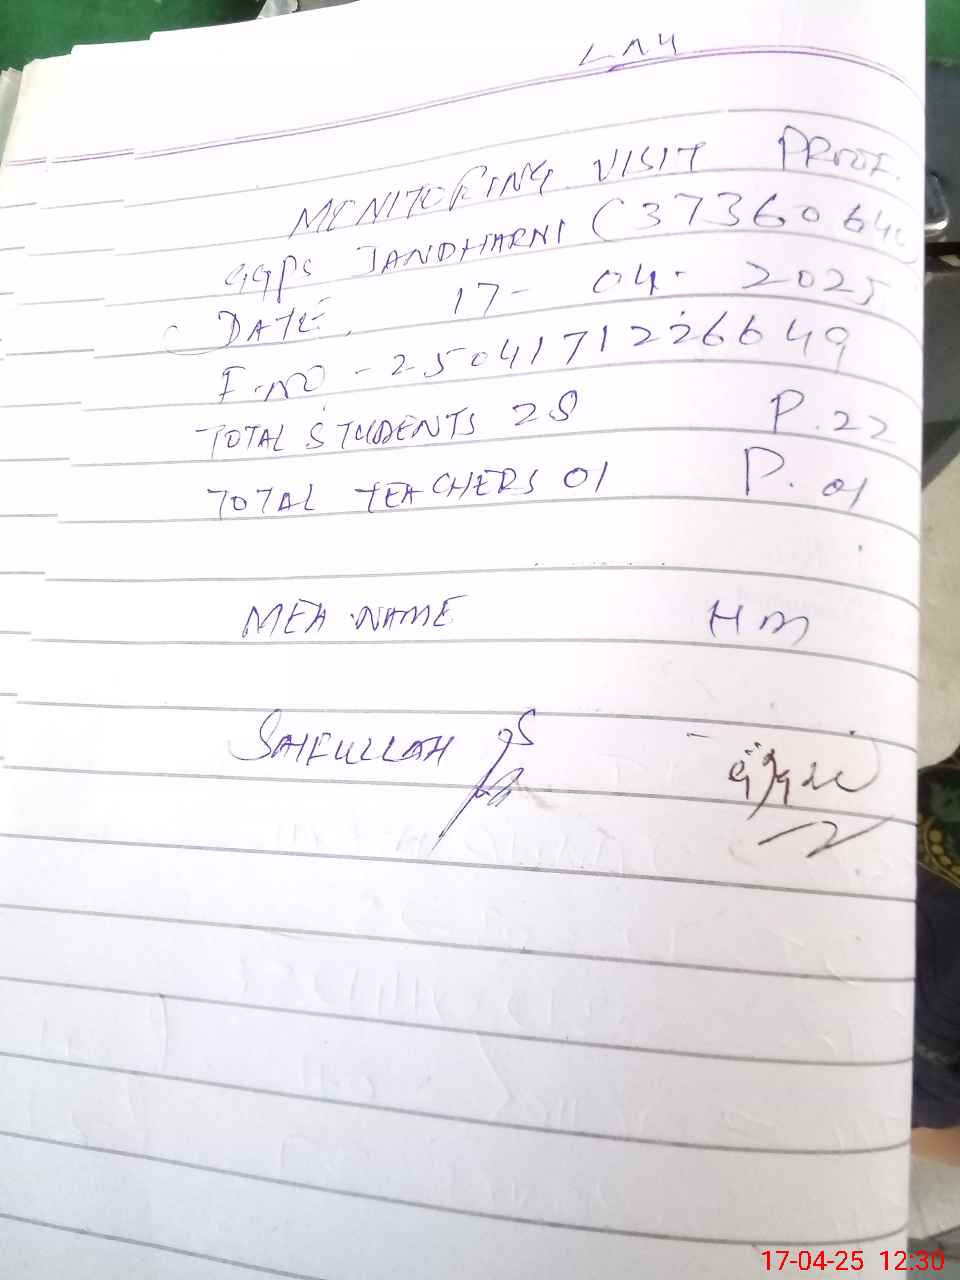 MONITORING VISIT PROOF.
GGPS JANDHARNI (3736064
DATE. 17-04-2025
F.NO - 2504171226649
TOTAL STUDENTS 28 P.22
TOTAL TEACHERS 01 P.01
MEA NAME HM
SAIFULLAH
17-04-25 12:30